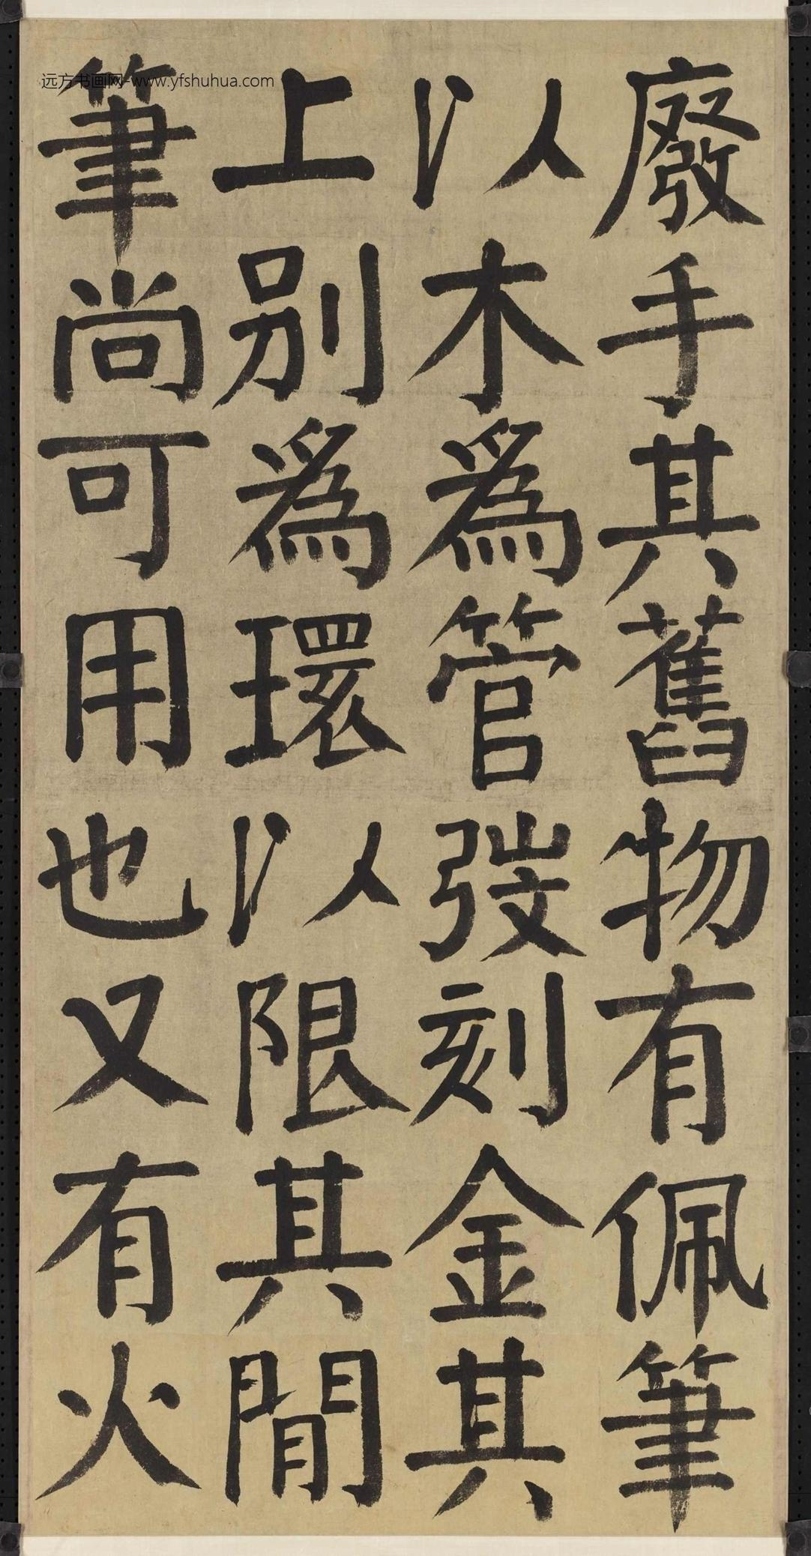 廢手其舊物有佩筆
以木為管弢刻金其
上別為環以限其間
筆尚可用也又有火
远方书画网-www.yfshuhua.com